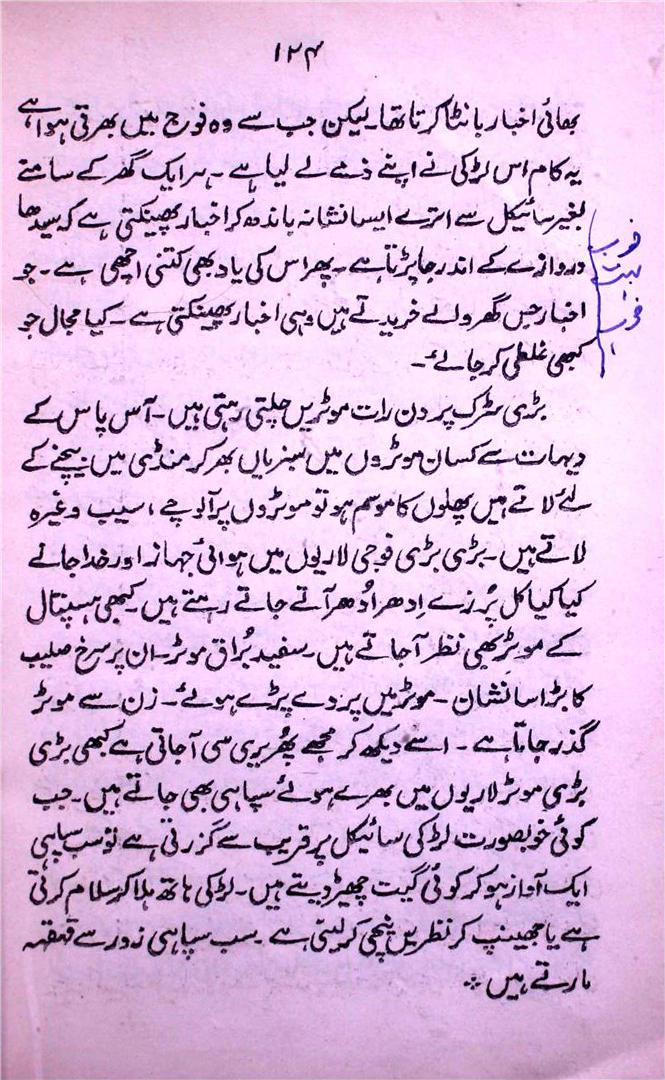 ۱۲۴
بھائی اخبار بانٹا کرتا تھا۔ لیکن جب سے وہ فوج میں بھرتی ہوا ہے
یہ کام اس لڑکی نے اپنے ذمے لے لیا ہے۔ ہر ایک گھر کے سامنے
بغیر سائیکل سے اترے ایسا نشانہ باندھ کر اخبار پھینکتی ہے کہ سیدھا
دروازے کے اندر جا پڑتا ہے۔ پھر اس کی یاد بھی کتنی اچھی ہے۔ جو
اخبار جس گھر والے خریدتے ہیں وہی اخبار پھینکتی ہے۔ کیا مجال جو
کبھی غلطی کر جائے۔
خوب
بہت
خوب
بڑی سڑک پر دن رات موٹریں چلتی رہتی ہیں۔ آس پاس کے
دیہات سے کسان موٹروں میں سبزیاں بھر کر منڈی میں بیچنے کے
لئے لاتے ہیں پھلوں کا موسم ہو تو موٹروں پر آلوچے، سیب وغیرہ
لاتے ہیں۔ بڑی بڑی فوجی لاریوں میں ہوائی جہاز اور خدا جانے
کیا کیا کل پُرزے اِدھر اُدھر آتے جاتے رہتے ہیں۔ کبھی ہسپتال
کے موٹر بھی نظر آ جاتے ہیں۔ سفید بُراق موٹر۔ ان پر سرخ صلیب
کا بڑا سا نشان۔ موٹر میں پردے پڑے ہوئے۔ زن سے موٹر
گذر جاتا ہے۔ اسے دیکھ کر مجھے پھُریری سی آ جاتی ہے کبھی بڑی
بڑی موٹر لاریوں میں بھرے ہوئے سپاہی بھی جاتے ہیں۔ جب
کوئی خوبصورت لڑکی سائیکل پر قریب سے گزرتی ہے تو سب سپاہی
ایک آواز ہو کر کوئی گیت چھیڑ دیتے ہیں۔ لڑکی ہاتھ ہلا کر سلام کرتی
ہے یا جھینپ کر نظریں نیچی کر لیتی ہے۔ سب سپاہی زور سے قہقہہ
مارتے ہیں ⁂